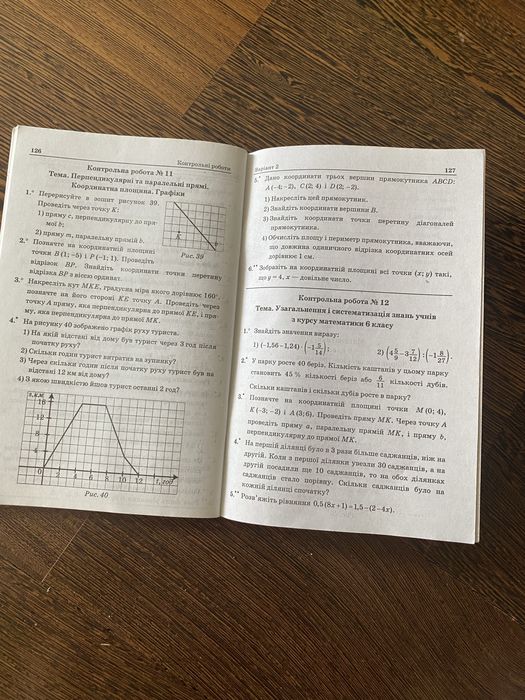 126
Контрольні роботи
Контрольна робота № 11
Тема. Перпендикулярні та паралельні прямі.
Координатна площина. Графіки
1.° Перерисуйте в зошит рисунок 39.
Проведіть через точку K:
1) пряму c, перпендикулярну до пря-
мої b;
2) пряму m, паралельну прямій b.
K
Рис. 39
2.° Позначте на координатній площині
точки B (1; −5) і P (−1; 1). Проведіть
відрізок BP. Знайдіть координати точки перетину
відрізка BP з віссю ординат.
3.° Накресліть кут MKE, градусна міра якого дорівнює 160°,
позначте на його стороні KE точку A. Проведіть через
точку A пряму, яка перпендикулярна до прямої KE, і пря-
му, яка перпендикулярна до прямої MK.
4.° На рисунку 40 зображено графік руху туриста.
1) На якій відстані від дому був турист через 3 год після
початку руху?
2) Скільки годин турист витратив на зупинку?
3) Через скільки годин після початку руху турист був на
відстані 12 км від дому?
4) З якою швидкістю йшов турист останні 2 год?
s, км
16
12
8
4
0 2 4 6 8 10 12 t, год
Рис. 40
Варіант 2
127
5.° Дано координати трьох вершин прямокутника ABCD:
A (−4; −2), C (2; 4) і D (2; −2).
1) Накресліть цей прямокутник.
2) Знайдіть координати вершини B.
3) Знайдіть координати точки перетину діагоналей
прямокутника.
4) Обчисліть площу і периметр прямокутника, вважаючи,
що довжина одиничного відрізка координатних осей
дорівнює 1 см.
6.°° Зобразіть на координатній площині всі точки (x; y) такі,
що y = 4, x — довільне число.
Контрольна робота № 12
Тема. Узагальнення і систематизація знань учнів
з курсу математики 6 класу
1.° Знайдіть значення виразу:
1) (−1,56−1,24) · (−1 5/14); 2) (4 5/9 − 3 7/12) : (−1 8/27).
2.° У парку росте 40 беріз. Кількість каштанів у цьому парку
становить 45 % кількості беріз або 6/11 кількості дубів.
Скільки каштанів і скільки дубів росте в парку?
3.° Позначте на координатній площині точки M (0; 4),
K (−3; −2) і A (3; 6). Проведіть пряму MK. Через точку A
проведіть пряму a, паралельну прямій MK, і пряму b,
перпендикулярну до прямої MK.
4.° На першій ділянці було в 3 рази більше саджанців, ніж на
другій. Коли з першої ділянки увезли 30 саджанців, а на
другій посадили ще 10 саджанців, то на обох ділянках
саджанців стало порівну. Скільки саджанців було на
кожній ділянці спочатку?
5.°° Розв'яжіть рівняння 0,5 (8x + 1) = 1,5 − (2 − 4x).